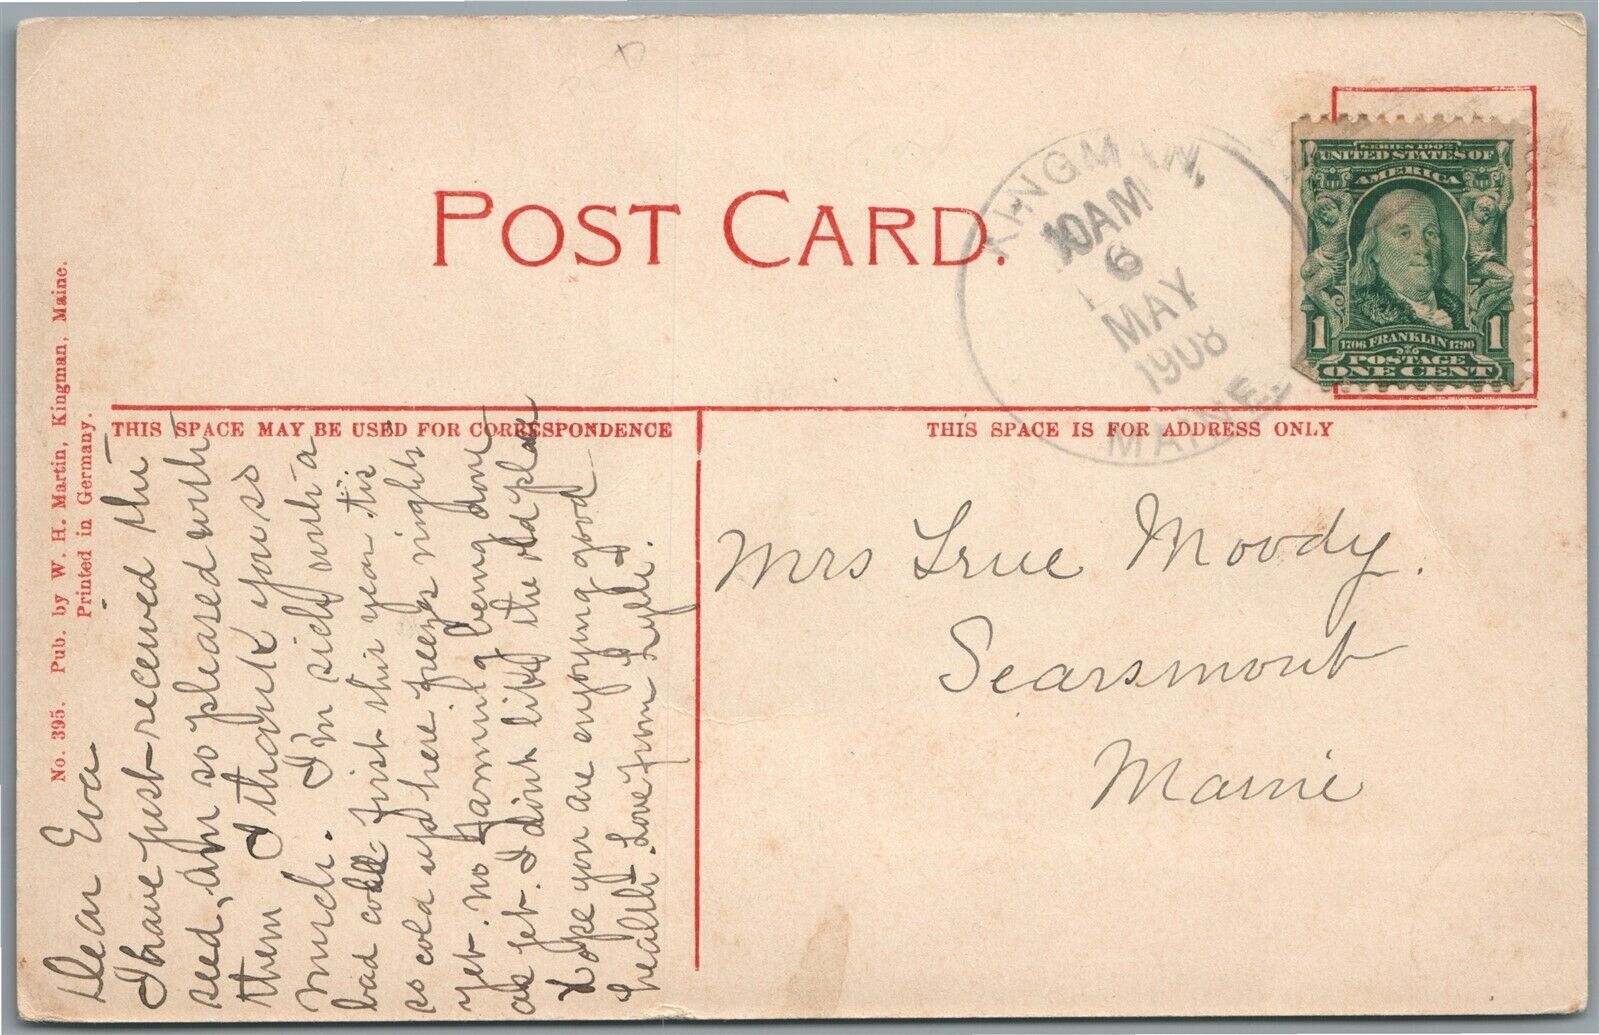 POST CARD.
KINGMAN,
10AM
6
MAY
1908
MAINE.
SERIES 1902
UNITED STATES OF
AMERICA
1 1
1706 FRANKLIN 1790
POSTAGE
ONE CENT
THIS SPACE MAY BE USED FOR CORRESPONDENCE
THIS SPACE IS FOR ADDRESS ONLY
No. 395. Pub. by W. H. Martin, Kingman, Maine.
Printed in Germany.
Dear Eva
I have just received the
seed, am so pleased with
them I thank you so
much. I'm sick with a
bad cold first this year tis
so cold up here freezes nights
yet. No farming being done
as yet. I dont like the old place
Hope you are enjoying good
health. Love from Lyle.
Mrs True Moody.
Searsmont
Maine